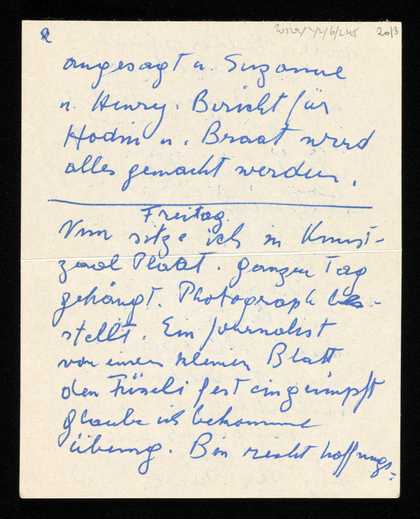 2
20/3
angesagt u. Suzanne
u. Henry. Bericht für
Hodin u. Braat wird
alles gemacht werden.
Freitag
Nun sitze ich in Kunst-
zaal Plaat. ganzen Tag
gehängt. Photograph be-
stellt. Ein Journalist
von einem kleinen Blatt
den Füseli fest eingeimpft
glaube ich bekomme
übung. Bin recht hoffnungs-